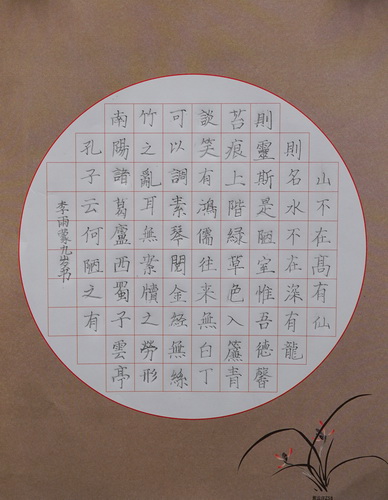 山不在高有仙
則名水不在深有龍
則靈斯是陋室惟吾德馨
苔痕上階綠草色入簾青
談笑有鴻儒往来無白丁
可以調素琴閱金經無絲
竹之亂耳無案牘之勞形
南陽諸葛廬西蜀子雲亭
孔子云何陋之有
李雨蒙九岁书